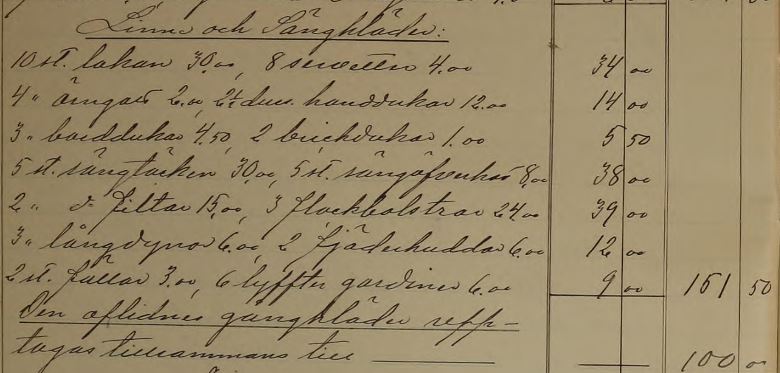 Linne och Sängkläder:
10 st. lakan 30.00, 8 servetter 4.00 34 00
4 " örngott 2.00, 2½ duss. handdukar 12.00 14 00
3 " borddukar 4.50, 2 brickdukar 1.00 5 50
5 st. sängtäcken 30.00, 5 st. sängöfverkast 8.00 38 00
2 " d:o filtar 15.00, 3 flockbolstrar 24.00 39 00
3 " långdynor 6.00, 2 fjäderkuddar 6.00 12 00
2 st. fällar 3.00, 6 lyffter gardiner 6.00 9 00 151 50
Den aflidnes gångkläder upp-
tagas tillsammans till 100 00